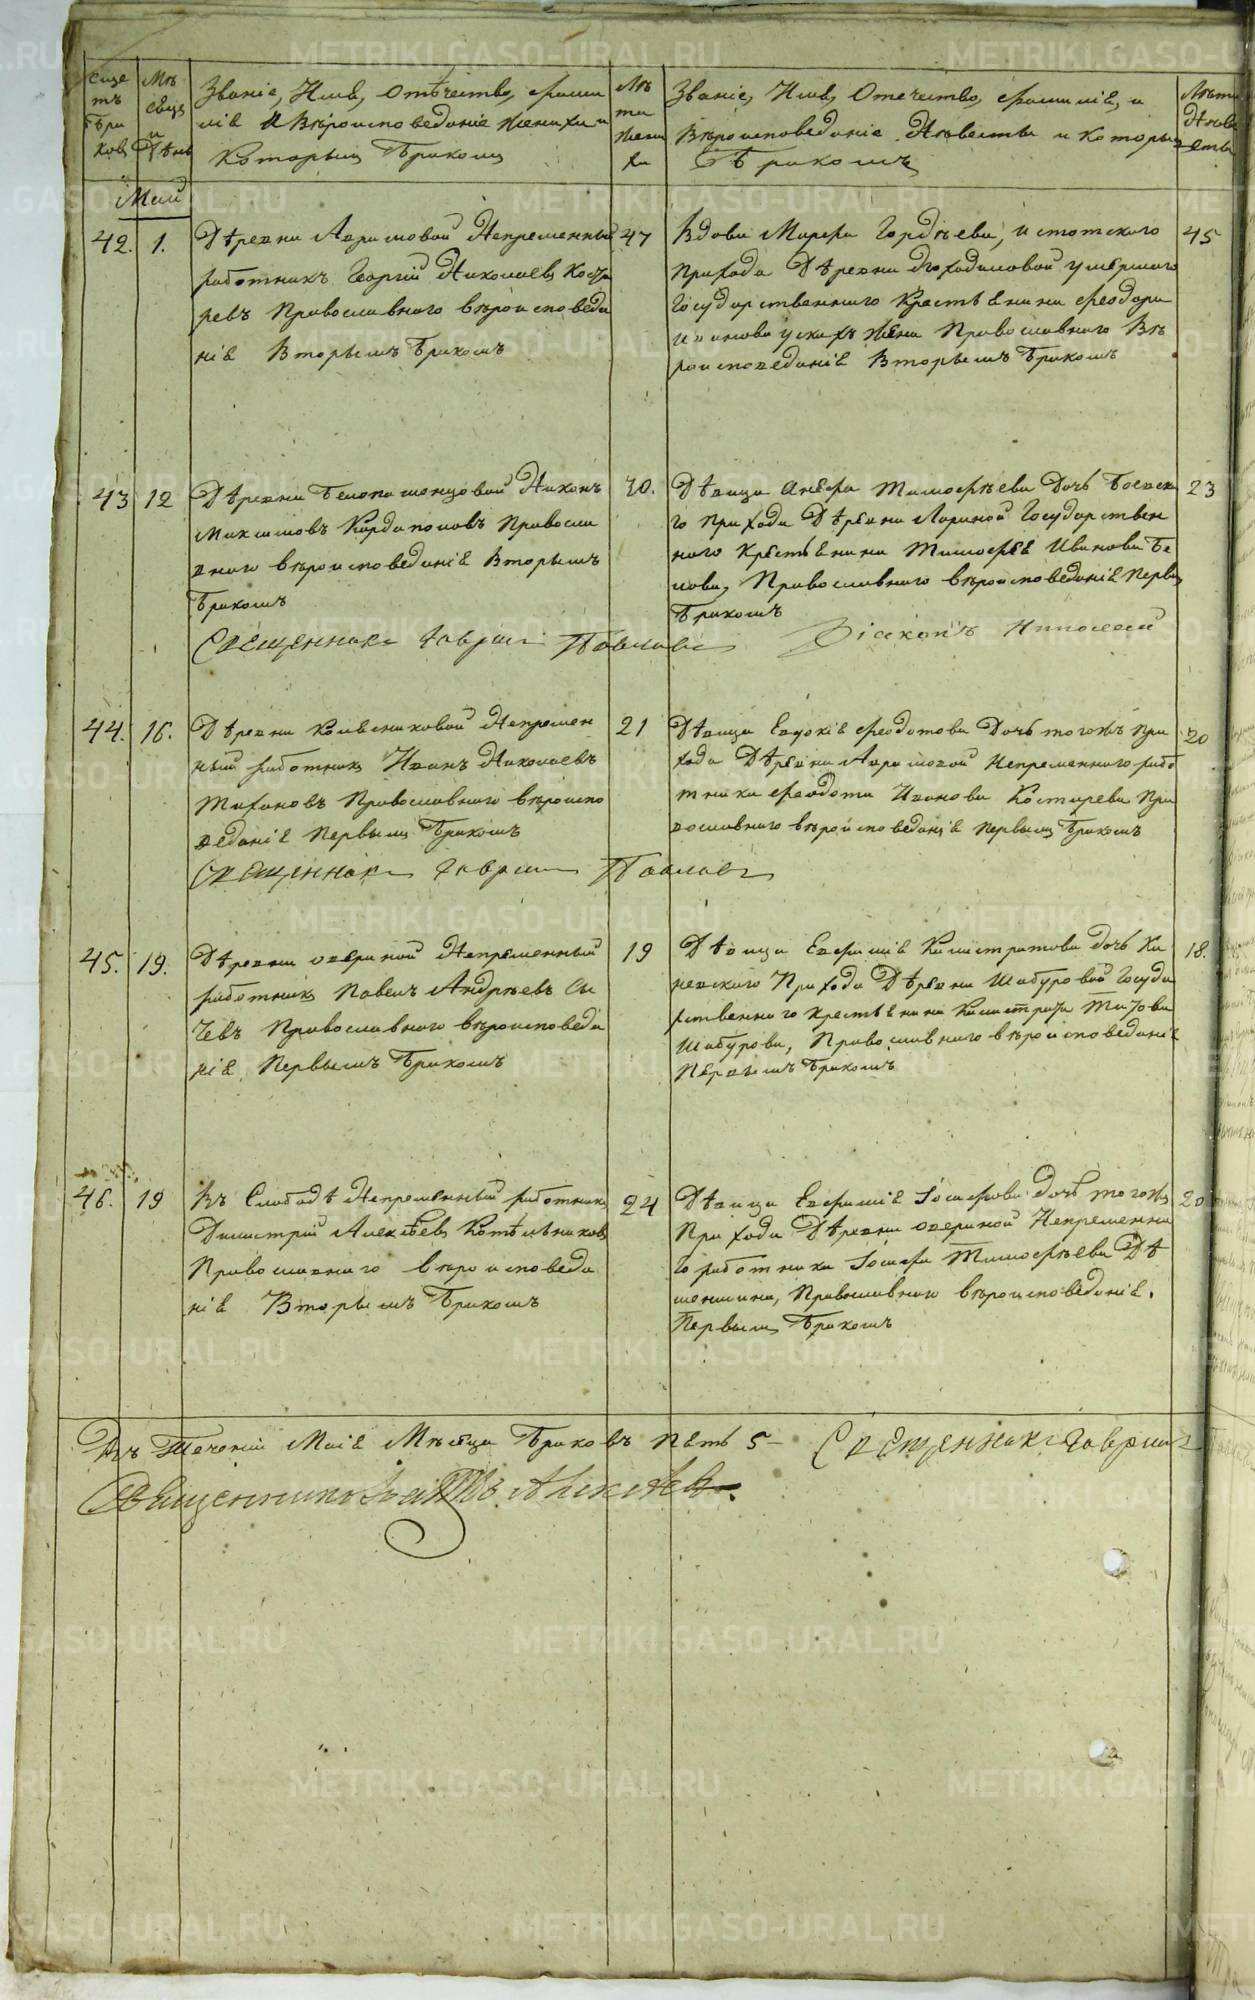 Счетъ браковъ
Мѣсяцъ и День
Званіе, Имя, Отчество, фами
лія и Вѣроисповеданіе Жениха и
Которымъ Бракомъ
Лѣта Жениха
Званіе, Имя, Отечество, фамилія, и
Вѣроисповеданіе Невесты и которымъ
Бракомъ
Лѣта Невесты
Май
42. 1.
Деревни Аврамовой Непременный
работникъ Георгій Николаевъ Коста
ревъ Православнаго вѣроисповеда
нія Вторымъ Бракомъ
47
Вдова Марфа Гордѣева, Истотского
прихода Деревни умершаго
Государственнаго Крестьянина Феодора
Иванова жена Православнаго Вѣ
роисповеданія Вторымъ Бракомъ
45
43 12
Деревни Никонъ
Максимовъ Кардаполовъ Правосла
внаго вѣроисповеданія Вторымъ
Бракомъ
30.
Девица Анфра Тимофѣева Дочь Боевска
го прихода Деревни Лариной Государствен
наго крестьянина Тимофея Иванова Бе
лова, Православнаго вѣроисповеданія первы
Бракомъ
23
Священникъ Гавриилъ Павловъ
Діаконъ Николай
44. 16.
Деревни Колесниковой Непремен
ный работникъ Иванъ Николаевъ
Тихановъ Православнаго вѣроиспо
веданія первымъ Бракомъ
21
Девица Евдокія Феодотова Дочь тогожъ при
хода Деревни Аврамовой Непременнаго рабо
тника Феодота Иванова Костарева Пра
вославнаго вѣроисповеданія первымъ Бракомъ
20
Священникъ Гавриилъ Павловъ
45. 19.
Деревни Озериной Непременный
работникъ Павелъ Андрѣевъ Сы
чевъ Православнаго вѣроисповеда
нія Первымъ Бракомъ
19
Девица Евфимія Калистратова дочь Ка
невского Прихода Деревни Шабуровой Госуда
рственнаго крестьянина Калистрата
Шабурова, Православнаго вѣроисповеданія
Первымъ Бракомъ
18.
46. 19
Въ Слободе Непременный работникъ
Димитрій Алексѣевъ Котельниковъ
Православнаго вѣроисповеда
нія Вторымъ Бракомъ
24
Девица Евфимія Іосифова дочь тогожъ
Прихода Деревни Озериной Непременна
го работника Іосифа Тимофѣева Де
меншина, Православнаго вѣроисповеданія.
Первымъ Бракомъ
20
Въ Теченіи Маія Мѣсяца Браковъ Пять 5 – Священникъ Гавриилъ
Священникъ Алексѣевъ.
METRIKI.GASO-URAL.RU